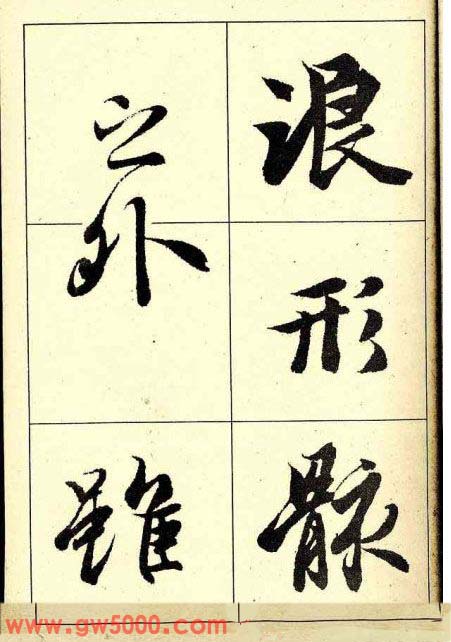 浪形骸
之外雖
www.gw5000.com